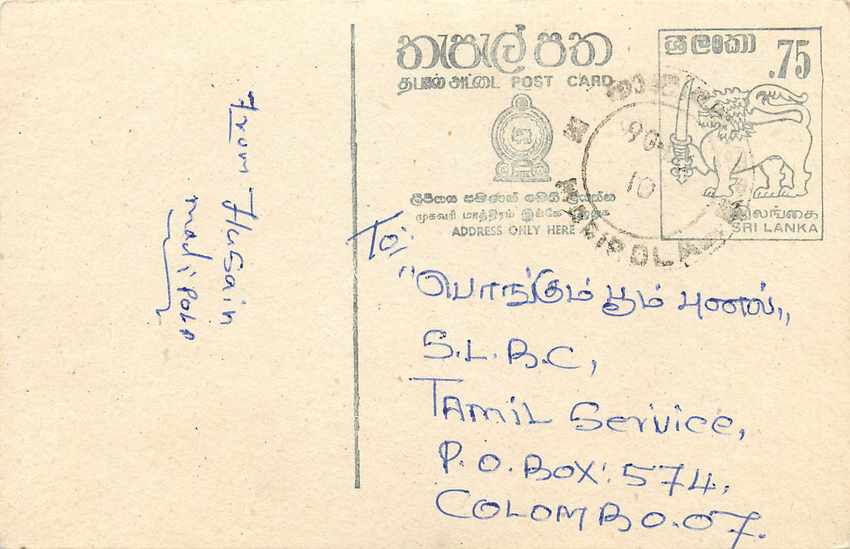 From Husain
madipola
තැපැල් පත
தபால் அட்டை POST CARD
ලිපිනය පමණක් මෙහි ලියන්න
முகவரி மாத்திரம் இங்கே
ADDRESS ONLY HERE
ශ්‍රී ලංකා
.75
இலங்கை
SRI LANKA
90
10
To:
"பொங்கும் பூம் புனல்,,
S.L.B.C,
TAMIL Service,
P.O.BOX: 574,
COLOMBO.07.